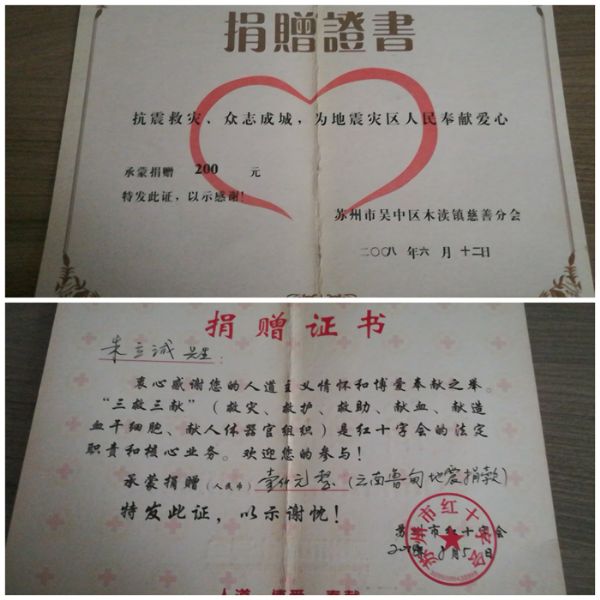 捐贈證書
抗震救灾、众志成城，为地震灾区人民奉献爱心
承蒙捐赠 200 元
特发此证，以示感谢！
苏州市吴中区木渎镇慈善分会
二〇〇八年六月十二日
捐赠证书
朱立诚 先生：
衷心感谢您的人道主义情怀和博爱奉献之举。
“三救三献”（救灾、救护、救助、献血、献造
血干细胞、献人体器官组织）是红十字会的法定
职责和核心业务。欢迎您的参与！
承蒙捐赠（人民币）壹仟元整（云南鲁甸地震捐款）
特发此证，以示谢忱！
苏州市红十字会
苏州市红十字会
8月5日
人道 博爱 奉献